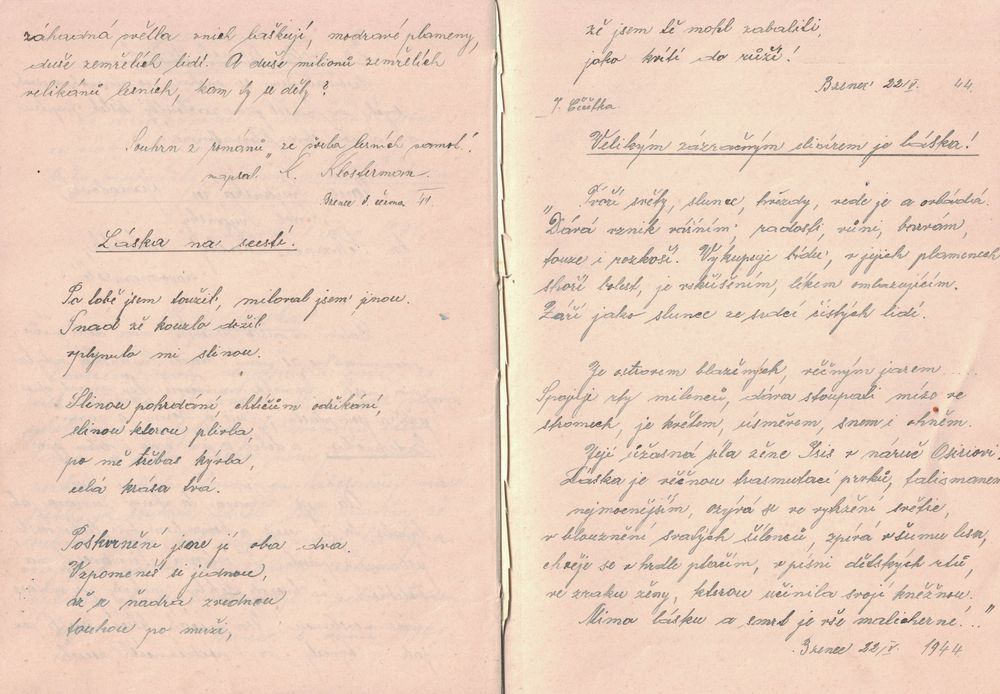 záhadná světla v nich laškují, modravé plameny,
duše zemřelích lidí. A duše milionů zemřelích
velikánů lesních, kam ty se děly?
Souhrn z románů „ze světa lesních samot."
napsal K. Klosterman.
Brzenec 8. června 44.
Láska na scestí.
Po tobě jsem toužil, miloval jsem jinou.
Snad zě kouzlo dožil
vplynulo mi slinou.
Slinou pohrdání, chtíčům odříkání,
slinou kterou plivla,
po mě třebas kývla,
celá krása tvá.
Poskvrnění jsme jí oba dva.
Vzpomeneš si jednou,
až se ňadra zvednou
touhou po muži,
zě jsem tě mohl zabaliti,
jako kvítí do růží!
Brzenec 22/V. 44.
J. Čížka.
Velikým zázračným elixírem je láska!
„Tvoří světy, slunce, hvězdy, vede je a ovládá.
Dává vznik vášním: radosti, vůni, barvám,
touze i rozkoši. Vykupuje bídu, v jejich plamenech
shoří bolest, je vzkříšením, lékem omlazujícím.
Září jako slunce ze srdcí čistých lidí.
Je ostrovem blažených, věčným jarem ....
Spojuje rty milenců, dává stoupati míze ve
stromech, je květem, úsměvem, snem i ohněm.
Její úžasná síla žene Isis v náruč Osiriovi.
Láska je věčnou trasmutací prvků, talismanem
nejmocnějším, ozývá se ve vytržení světic,
v blouznění svatých šílenců, zpívá v šumu lesa,
chvěje se v hrdle ptačím, v písni dětských rtů,
ve zraku ženy, kterou učinila svojí kněžnou.
Mimo lásku a smrt je vše malicherné..."
Brzenec 22/V. 1944.